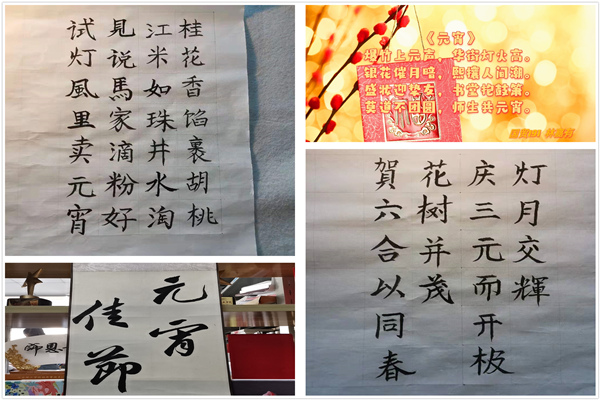 桂花香馅裹胡桃
江米如珠井水淘
見说馬家滴粉好
试灯風里卖元宵
《元宵》
爆竹上元声,华街灯火高。
银花催月暗,熙攘人间潮。
盛 迎 友,书堂 鼓 。
莫道不团圆,师生共元宵。
元宵
佳節
师恩
灯月交輝
庆三元而开极
花树并茂
賀六合以同春